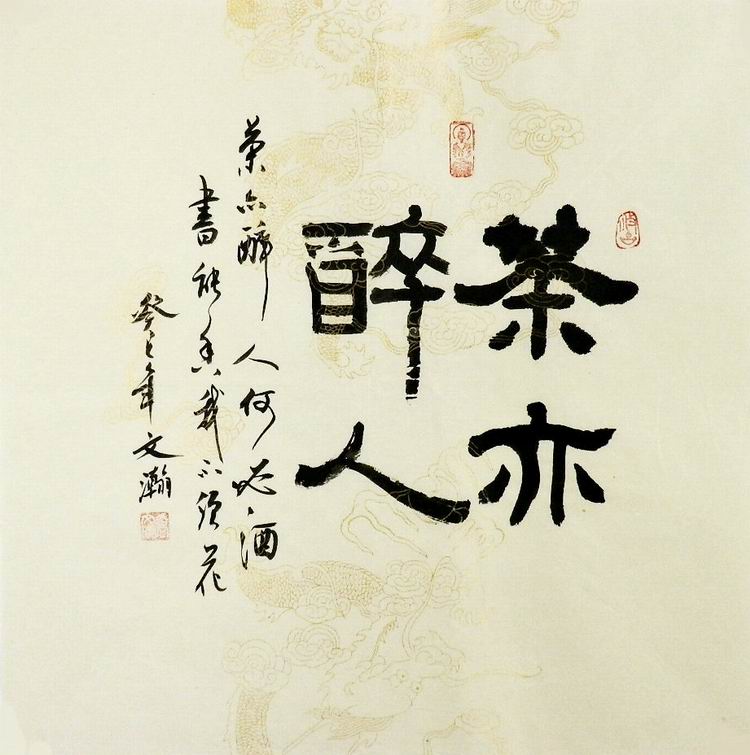 茶亦
醉人
茶亦醉人何必酒
書能香我不須花
癸巳年文瀚